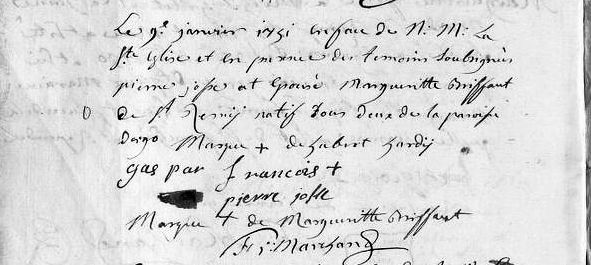 Le 9e janvier 1751 en face de N: M: La
Ste Eglise et en presence des temoins Soubsignés
pierre josse at Epousé Margueritte Briffaut
de St Remij natif tous deux de la paroise
Marque + de hubert hardij
gas par francois +
pierre josse
Marque + de Margueritte Briffaut
Marchand